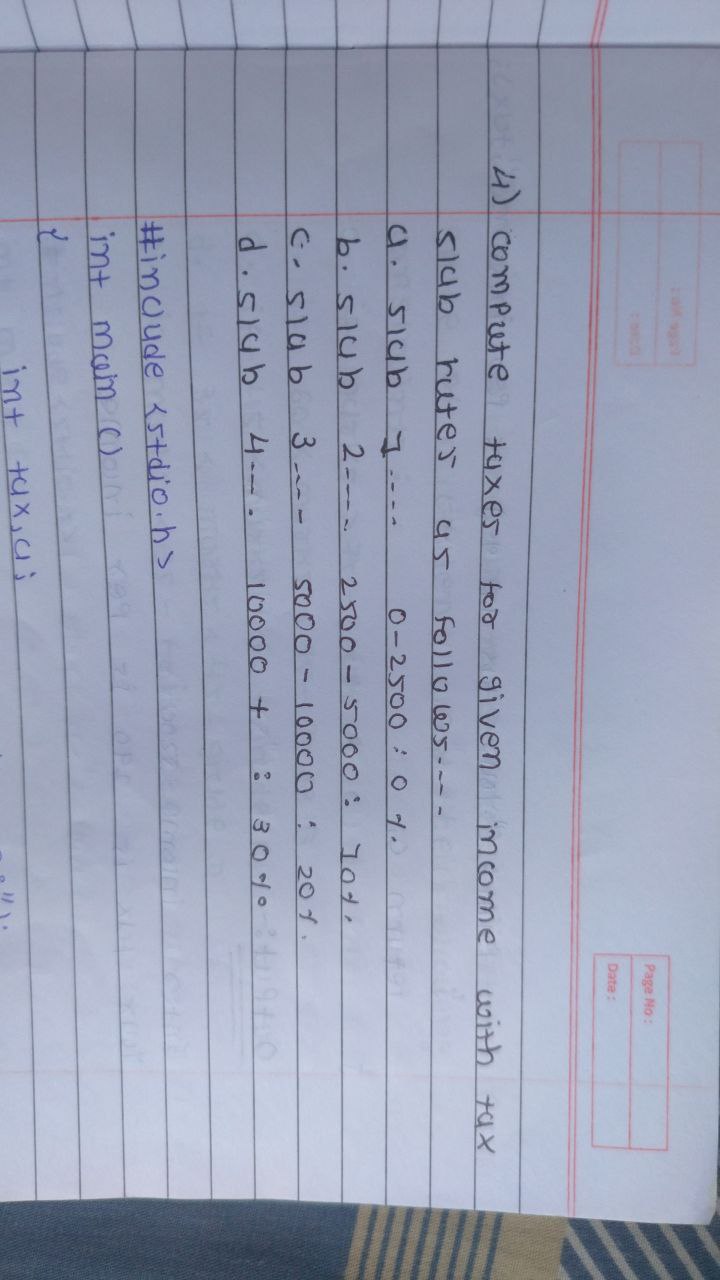 Page No:
Date:
4) compute taxes for given income with tax
slab rates as follows---
a. slab 1---- 0-2500: 0%
b. slab 2---- 2500-5000: 10%
c. slab 3---- 5000-10000: 20%.
d. slab 4---. 10000 + : 30%
#include <stdio.h>
int main()
{
int tax,a;